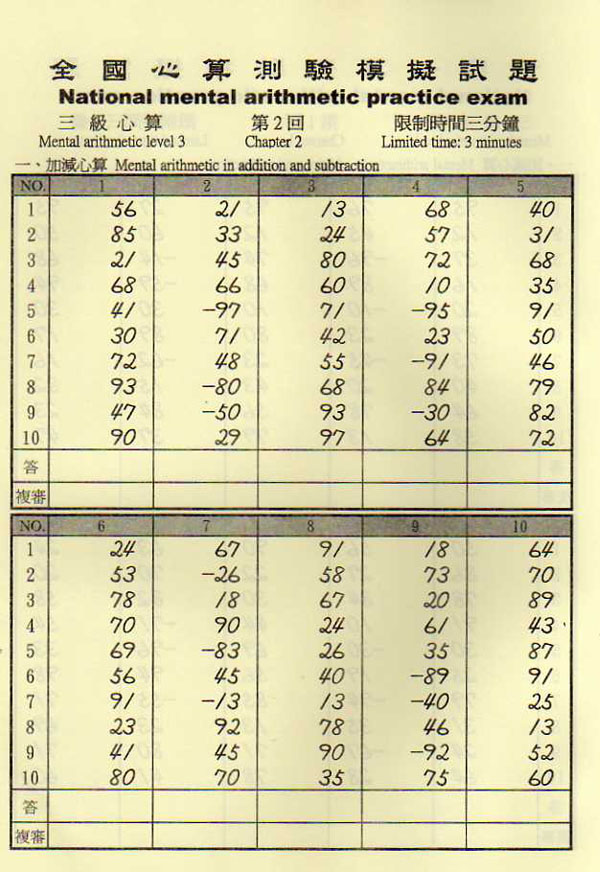 全國心算測驗模擬試題
National mental arithmetic practice exam
三級心算 第2回 限制時間三分鐘
Mental arithmetic level 3 Chapter 2 Limited time: 3 minutes
一、加減心算 Mental arithmetic in addition and subtraction
NO. 1 2 3 4 5
1 56 21 13 68 40
2 85 33 24 57 31
3 21 45 80 72 68
4 68 66 60 10 35
5 41 -97 71 -95 91
6 30 71 42 23 50
7 72 48 55 -91 46
8 93 -80 68 84 79
9 47 -50 93 -30 82
10 90 29 97 64 72
答
複審
NO. 6 7 8 9 10
1 24 67 91 18 64
2 53 -26 58 73 70
3 78 18 67 20 89
4 70 90 24 61 43
5 69 -83 26 35 87
6 56 45 40 -89 91
7 91 -13 13 -40 25
8 23 92 78 46 13
9 41 45 90 -92 52
10 80 70 35 75 60
答
複審